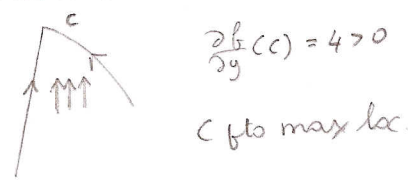 C
∂f/∂y (C) = 4 > 0
C pto max loc.